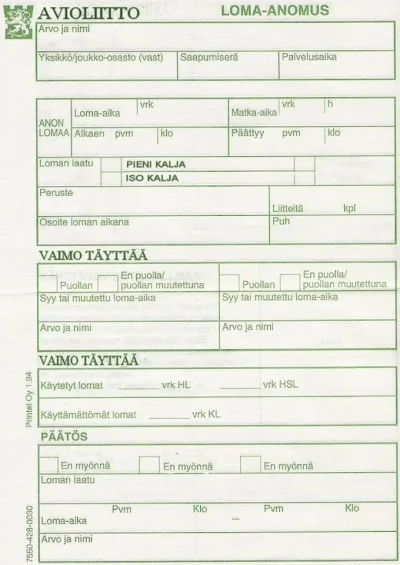 AVIOLIITTO LOMA-ANOMUS
Arvo ja nimi
Yksikkö/joukko-osasto (vast) Saapumiserä Palvelusaika
ANON LOMAA
Loma-aika vrk Matka-aika vrk h
Alkaen pvm klo Päättyy pvm klo
Loman laatu PIENI KALJA
ISO KALJA
Peruste
Liitteitä kpl
Osoite loman aikana Puh
VAIMO TÄYTTÄÄ
Puollan En puolla/ puollan muutettuna Puollan En puolla/ puollan muutettuna
Syy tai muutettu loma-aika Syy tai muutettu loma-aika
Arvo ja nimi Arvo ja nimi
VAIMO TÄYTTÄÄ
Käytetyt lomat ______ vrk HL ______ vrk HSL
Käyttämättömät lomat ______ vrk KL
PÄÄTÖS
En myönnä En myönnä En myönnä
Loman laatu
Pvm Klo Pvm Klo
Loma-aika –
Arvo ja nimi
Printel Oy 1.94
7550-428-0030